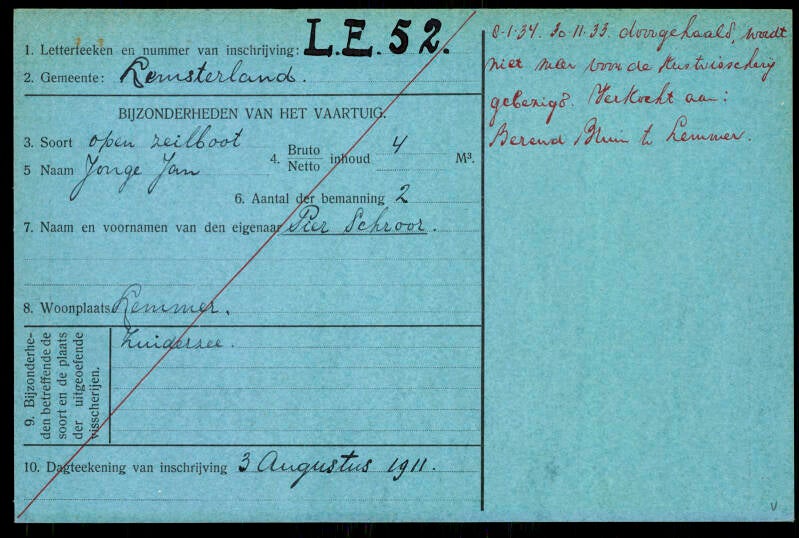 1. Letterteeken en nummer van inschrijving: L.E. 52.
2. Gemeente: Lemsterland.
BIJZONDERHEDEN VAN HET VAARTUIG.
3. Soort open zeilboot
4. Bruto Netto inhoud 4 M³.
5 Naam Jonge Jan
6. Aantal der bemanning 2
7. Naam en voornamen van den eigenaar Pier Schroor.
8. Woonplaats Lemmer.
9. Bijzonderhe-
den betreffende de
soort en de plaats
der uitgeoefende
visscherijen.
Zuiderzee.
10. Dagteekening van inschrijving 3 Augustus 1911.
8-1-34. 30-11-33. doorgehaald, wordt
niet meer voor de kustvisscherij
gebezigd. Verkocht aan:
Berend Bluin te Lemmer.
V